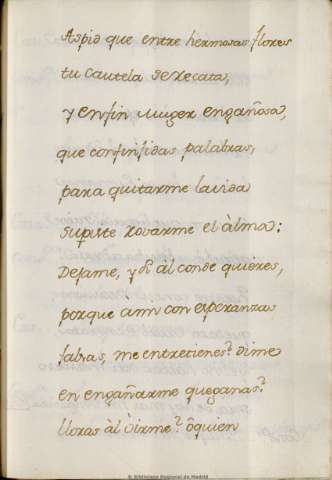 Aspid que entre hermosas flores
tu cautela se recata,
y en fin muger engañosa,
que con finjidas palabras,
para quitarme la vida
supiste rovarme el àlma:
Dejame, y si àl conde quieres,
porque aun con esperanzas
falsas, me entretienes? dime
en engañarme que ganas?
lloras àl òirme? ò quien
© Biblioteca Regional de Madrid